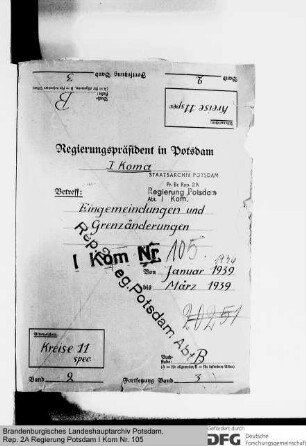 3
2
B
Kreise 11 spec.
Regierungspräsident in Potsdam
I Koma
STAATSARCHIV POTSDAM
Pr. Br. Rep. 2A
Regierung Potsdam
Abt. I Kom.
Betreff:
Eingemeindungen und
Grenzänderungen
I Kom Nr. 105
Rep. 2A Reg. Potsdam Abt.
Von Januar 1939
bis März 1939
20251
Kreise 11
spec
B
Band 2
Fortsetzung Band 3
Brandenburgisches Landeshauptarchiv Potsdam,
Rep. 2A Regierung Potsdam I Kom Nr. 105
Gefördert durch
DFG Deutsche
Forschungsgemeinschaft